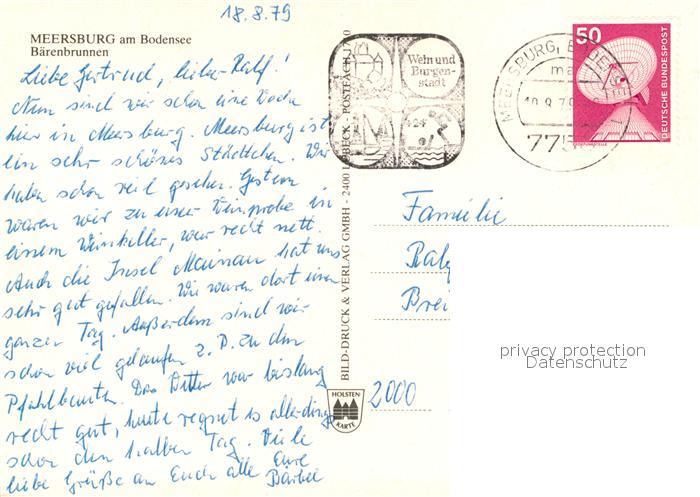 18.8.79
MEERSBURG am Bodensee
Bärenbrunnen
Liebe Gertrud, lieber Ralf!
Nun sind wir schon eine Woche
hier in Meersburg. Meersburg ist
ein sehr schönes Städtchen. Wir
haben schon viel gesehen. Gestern
waren wir zu einer Weinprobe in
einem Weinkeller, war recht nett.
Auch die Insel Mainau hat uns
sehr gut gefallen. Wir waren dort einen
ganzen Tag. Außerdem sind wir
schon viel gelaufen z. B. zu den
Pfahlbauten. Das Wetter war bislang
recht gut, heute regnet es allerdings
schon den halben Tag. Viele
liebe Grüße an Euch alle Eure
Bärbel
BILD-DRUCK & VERLAG GMBH - 2400 LÜBECK - POSTFACH 1710
Wein und
Burgen-
stadt
MEERSBURG,
ma
775
50
DEUTSCHE BUNDESPOST
Familie
2000
HOLSTEN
KARTE
privacy protection
Datenschutz